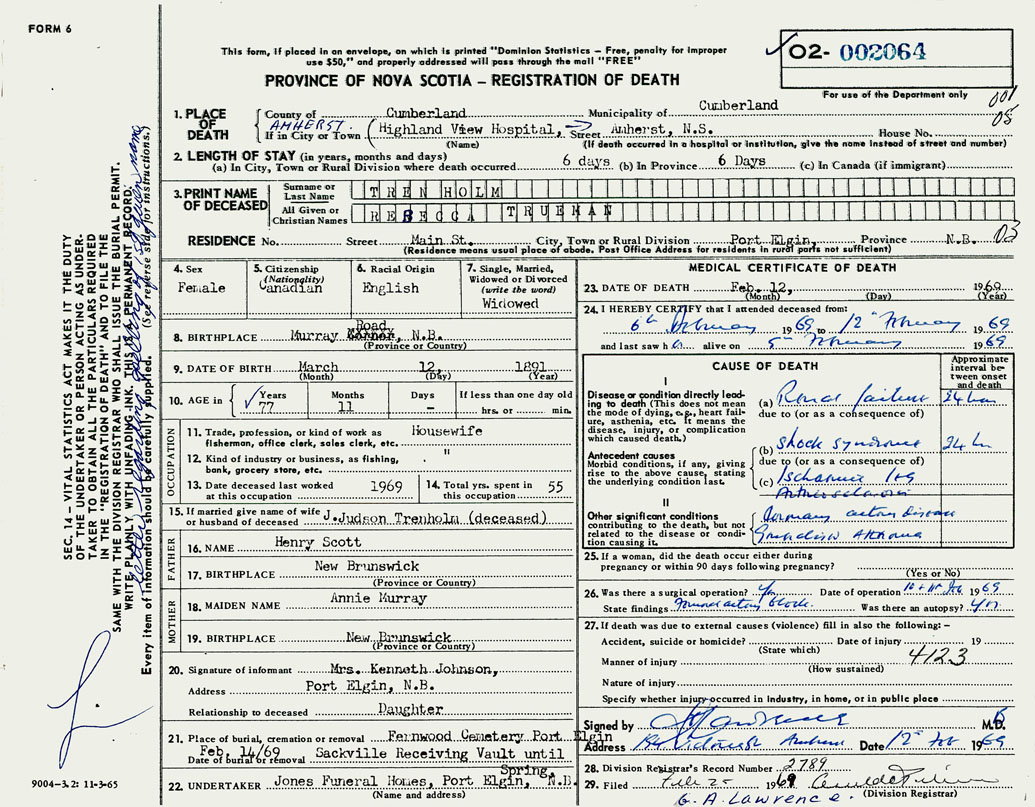 FORM 6
This form, if placed in an envelope, on which is printed "Dominion Statistics – Free, penalty for improper
use $50," and properly addressed will pass through the mail "FREE"
PROVINCE OF NOVA SCOTIA – REGISTRATION OF DEATH
02- 002064
For use of the Department only
001
08
1. PLACE OF DEATH
County of Cumberland Municipality of Cumberland
AMHERST. If in City or Town (Highland View Hospital, Street Amherst, N.S. House No.
(Name) (If death occurred in a hospital or institution, give the name instead of street and number)
2. LENGTH OF STAY (in years, months and days)
(a) In City, Town or Rural Division where death occurred 6 days (b) In Province 6 Days (c) In Canada (if immigrant)
3. PRINT NAME OF DECEASED
Surname or Last Name TRENHOLM
All Given or Christian Names REBECCA TRUEMAN
RESIDENCE No. Street Main St. City, Town or Rural Division Port Elgin, Province N.B. 03
(Residence means usual place of abode. Post Office Address for residents in rural parts not sufficient)
4. Sex
Female
5. Citizenship
(Nationality)
Canadian
6. Racial Origin
English
7. Single, Married,
Widowed or Divorced
(write the word)
Widowed
8. BIRTHPLACE Murray Road, N.B.
(Province or Country)
9. DATE OF BIRTH March 12, 1891
(Month) (Day) (Year)
10. AGE in Years 77 Months 11 Days – If less than one day old
hrs. or min.
OCCUPATION
11. Trade, profession, or kind of work as Housewife
fisherman, office clerk, sales clerk, etc.
12. Kind of industry or business, as fishing, "
bank, grocery store, etc.
13. Date deceased last worked at this occupation 1969
14. Total yrs. spent in this occupation 55
15. If married give name of wife or husband of deceased J.Judson Trenholm (deceased)
FATHER
16. NAME Henry Scott
17. BIRTHPLACE New Brunswick
(Province or Country)
MOTHER
18. MAIDEN NAME Annie Murray
19. BIRTHPLACE New Brunswick
(Province or Country)
20. Signature of informant Mrs. Kenneth Johnson,
Address Port Elgin, N.B.
Relationship to deceased Daughter
21. Place of burial, cremation or removal Fernwood Cemetery Port Elgin
Date of burial or removal Feb. 14/69 Sackville Receiving Vault until
Spring.
22. UNDERTAKER Jones Funeral Homes, Port Elgin, N.B.
(Name and address)
MEDICAL CERTIFICATE OF DEATH
23. DATE OF DEATH Feb. 12, 1969
(Month) (Day) (Year)
24. I HEREBY CERTIFY that I attended deceased from:
6th February 1969 to 12th February 1969
and last saw h alive on February 1969
CAUSE OF DEATH
Approximate interval between onset and death
I
Disease or condition directly leading to death (This does not mean the mode of dying, e.g., heart failure, asthenia, etc. It means the disease, injury, or complication which caused death.)
(a) Renal failure 24 hrs
due to (or as a consequence of)
Antecedent causes
Morbid conditions, if any, giving rise to the above cause, stating the underlying condition last.
(b) Shock syndrome 24 hr
due to (or as a consequence of)
(c) Ischaemic leg
Arteriosclerosis
II
Other significant conditions contributing to the death, but not related to the disease or condition causing it.
Coronary artery disease
Asthma
25. If a woman, did the death occur either during
pregnancy or within 90 days following pregnancy?
(Yes or No)
26. Was there a surgical operation? Yes Date of operation Feb 1969
State findings Was there an autopsy?
27. If death was due to external causes (violence) fill in also the following: –
Accident, suicide or homicide? Date of injury 19
(State which)
Manner of injury 4123
(How sustained)
Nature of injury
Specify whether injury occurred in Industry, in home, or in public place
Signed by M.D.
Address Amherst Date 12 Feb 1969
28. Division Registrar's Record Number 2789
29. Filed Feb 25 1969
(Division Registrar)
G. A. Lawrence.
SEC. 14 – VITAL STATISTICS ACT MAKES IT THE DUTY
OF THE UNDERTAKER OR PERSON ACTING AS UNDER-
TAKER TO OBTAIN ALL THE PARTICULARS REQUIRED
IN THE "REGISTRATION OF DEATH" AND TO FILE THE
SAME WITH THE DIVISION REGISTRAR WHO SHALL ISSUE THE BURIAL PERMIT.
WRITE PLAINLY WITH UNFADING INK. THIS IS A PERMANENT RECORD.
Every item of information should be carefully supplied. (See reverse side for instructions.)
9004-3.2: 11-3-65